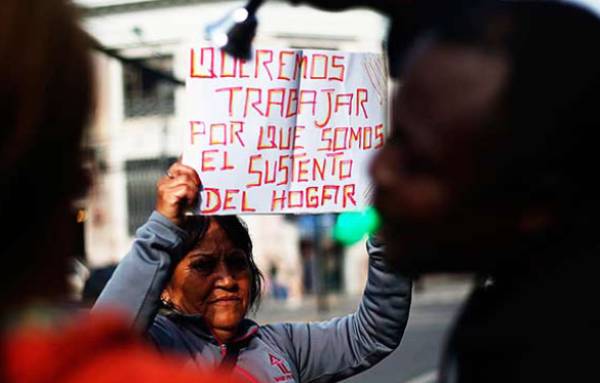 QUEREMOS
TRABAJAR
POR QUE SOMOS
EL SUSTENTO
DEL HOGAR